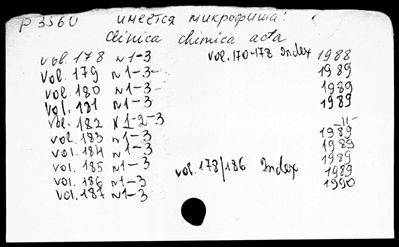 P 3560 имеется микрофиша!
Clinica chimica acta
vol. 178 N1-3 vol. 170-178 Index 1988
vol. 179 N1-3 1989
vol. 180 N1-3 1989
vol. 181 N1-3 1989
vol. 182 N1-2-3 -11-
vol. 183 N1-3 1989
vol. 184 N1-3 1989
vol. 185 N1-3 vol. 178/186 Index 1989
vol. 186 N1-3 1989
vol. 187 N1-3 1990